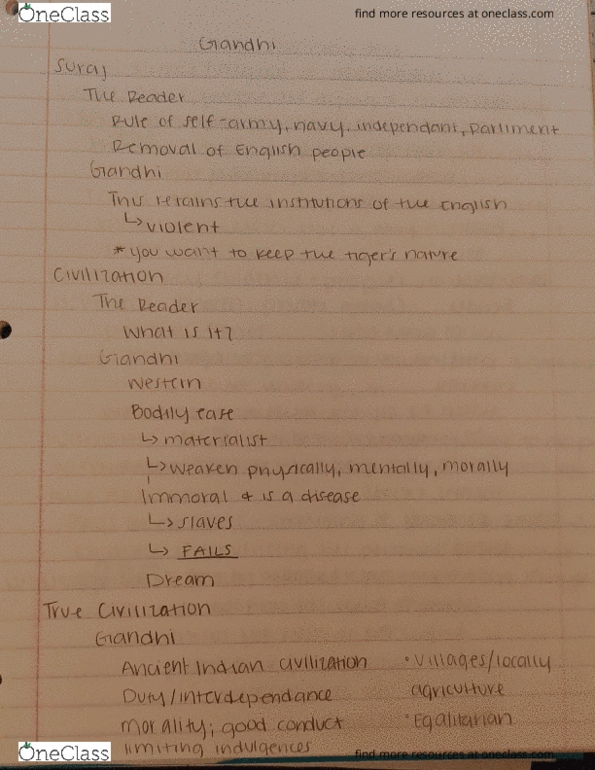 OneClass
find more resources at oneclass.com
Gandhi
Suraj
The Reader
Rule of self-army, navy, independant, parliment
Removal of English people
Gandhi
This retains the institutions of the English
↳ violent
* you want to keep the tiger's nature
Civilization
The Reader
What is it?
Gandhi
Western
Bodily ease
↳ materialist
↳ weaken physically, mentally, morally
Immoral & is a disease
↳ slaves
↳ FAILS
Dream
True Civilization
Gandhi
Ancient Indian civilization • villages/locally
Duty/interdependance agriculture
morality; good conduct • Egalitarian
limiting indulgences
OneClass
find more resources at oneclass.com